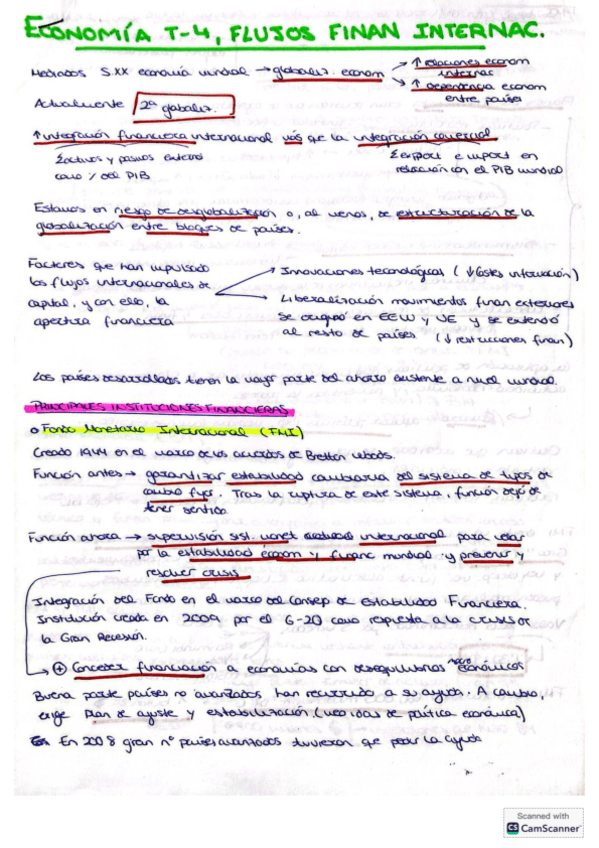 ECONOMÍA T-4, FLUJOS FINAN INTERNAC.
Mediados S.XX economía mundial → globaliz. econom → ↑ relaciones econom internac
→ ↑ dependencia econom entre países
Actualmente 2ª globaliz.
↑ integración financiera internacional más que la integración comercial
Σactivos y pasivos externos como % del PIB
Σexport e import en relación con el PIB mundial
Estamos en riesgo de desglobalización o, al menos, de estructuración de la
globalización entre bloques de países.
Factores que han impulsado
los flujos internacionales de
capital, y con ello, la
apertura financiera
→ Innovaciones tecnológicas (↓Costes información)
→ Liberalización movimientos finan exteriores
Se originó en EEUU y UE y se extendió
al resto de países (↓ restricciones finan)
Los países desarrollados tienen la mayor parte del ahorro existente a nivel mundial.
PRINCIPALES INSTITUCIONES FINANCIERAS
o Fondo Monetario Internacional (FMI)
Creado 1944 en el marco de los acuerdos de Bretton Woods.
Función antes → garantizar estabilidad cambiaria del sistema de tipos de
cambio fijos. Tras la ruptura de este sistema, función dejó de
tener sentido
Función ahora → supervisión sist. monet internacional para velar
por la estabilidad econom y financ mundial y prevenir y
resolver crisis
Integración del Fondo en el marco del Consejo de Estabilidad Financiera.
Institución creada en 2009 por el G-20 como respuesta a la crisis de
la Gran Recesión.
→ ⊕ Conceder financiación a economías con desequilibrios macroeconómicos
Buena parte países no avanzados han recurrido a su ayuda. A cambio,
exige Plan de ajuste y estabilización (medidas de política económica)
En 2008 gran nº países avanzados tuvieron que pedir la ayuda
Scanned with
CS CamScanner